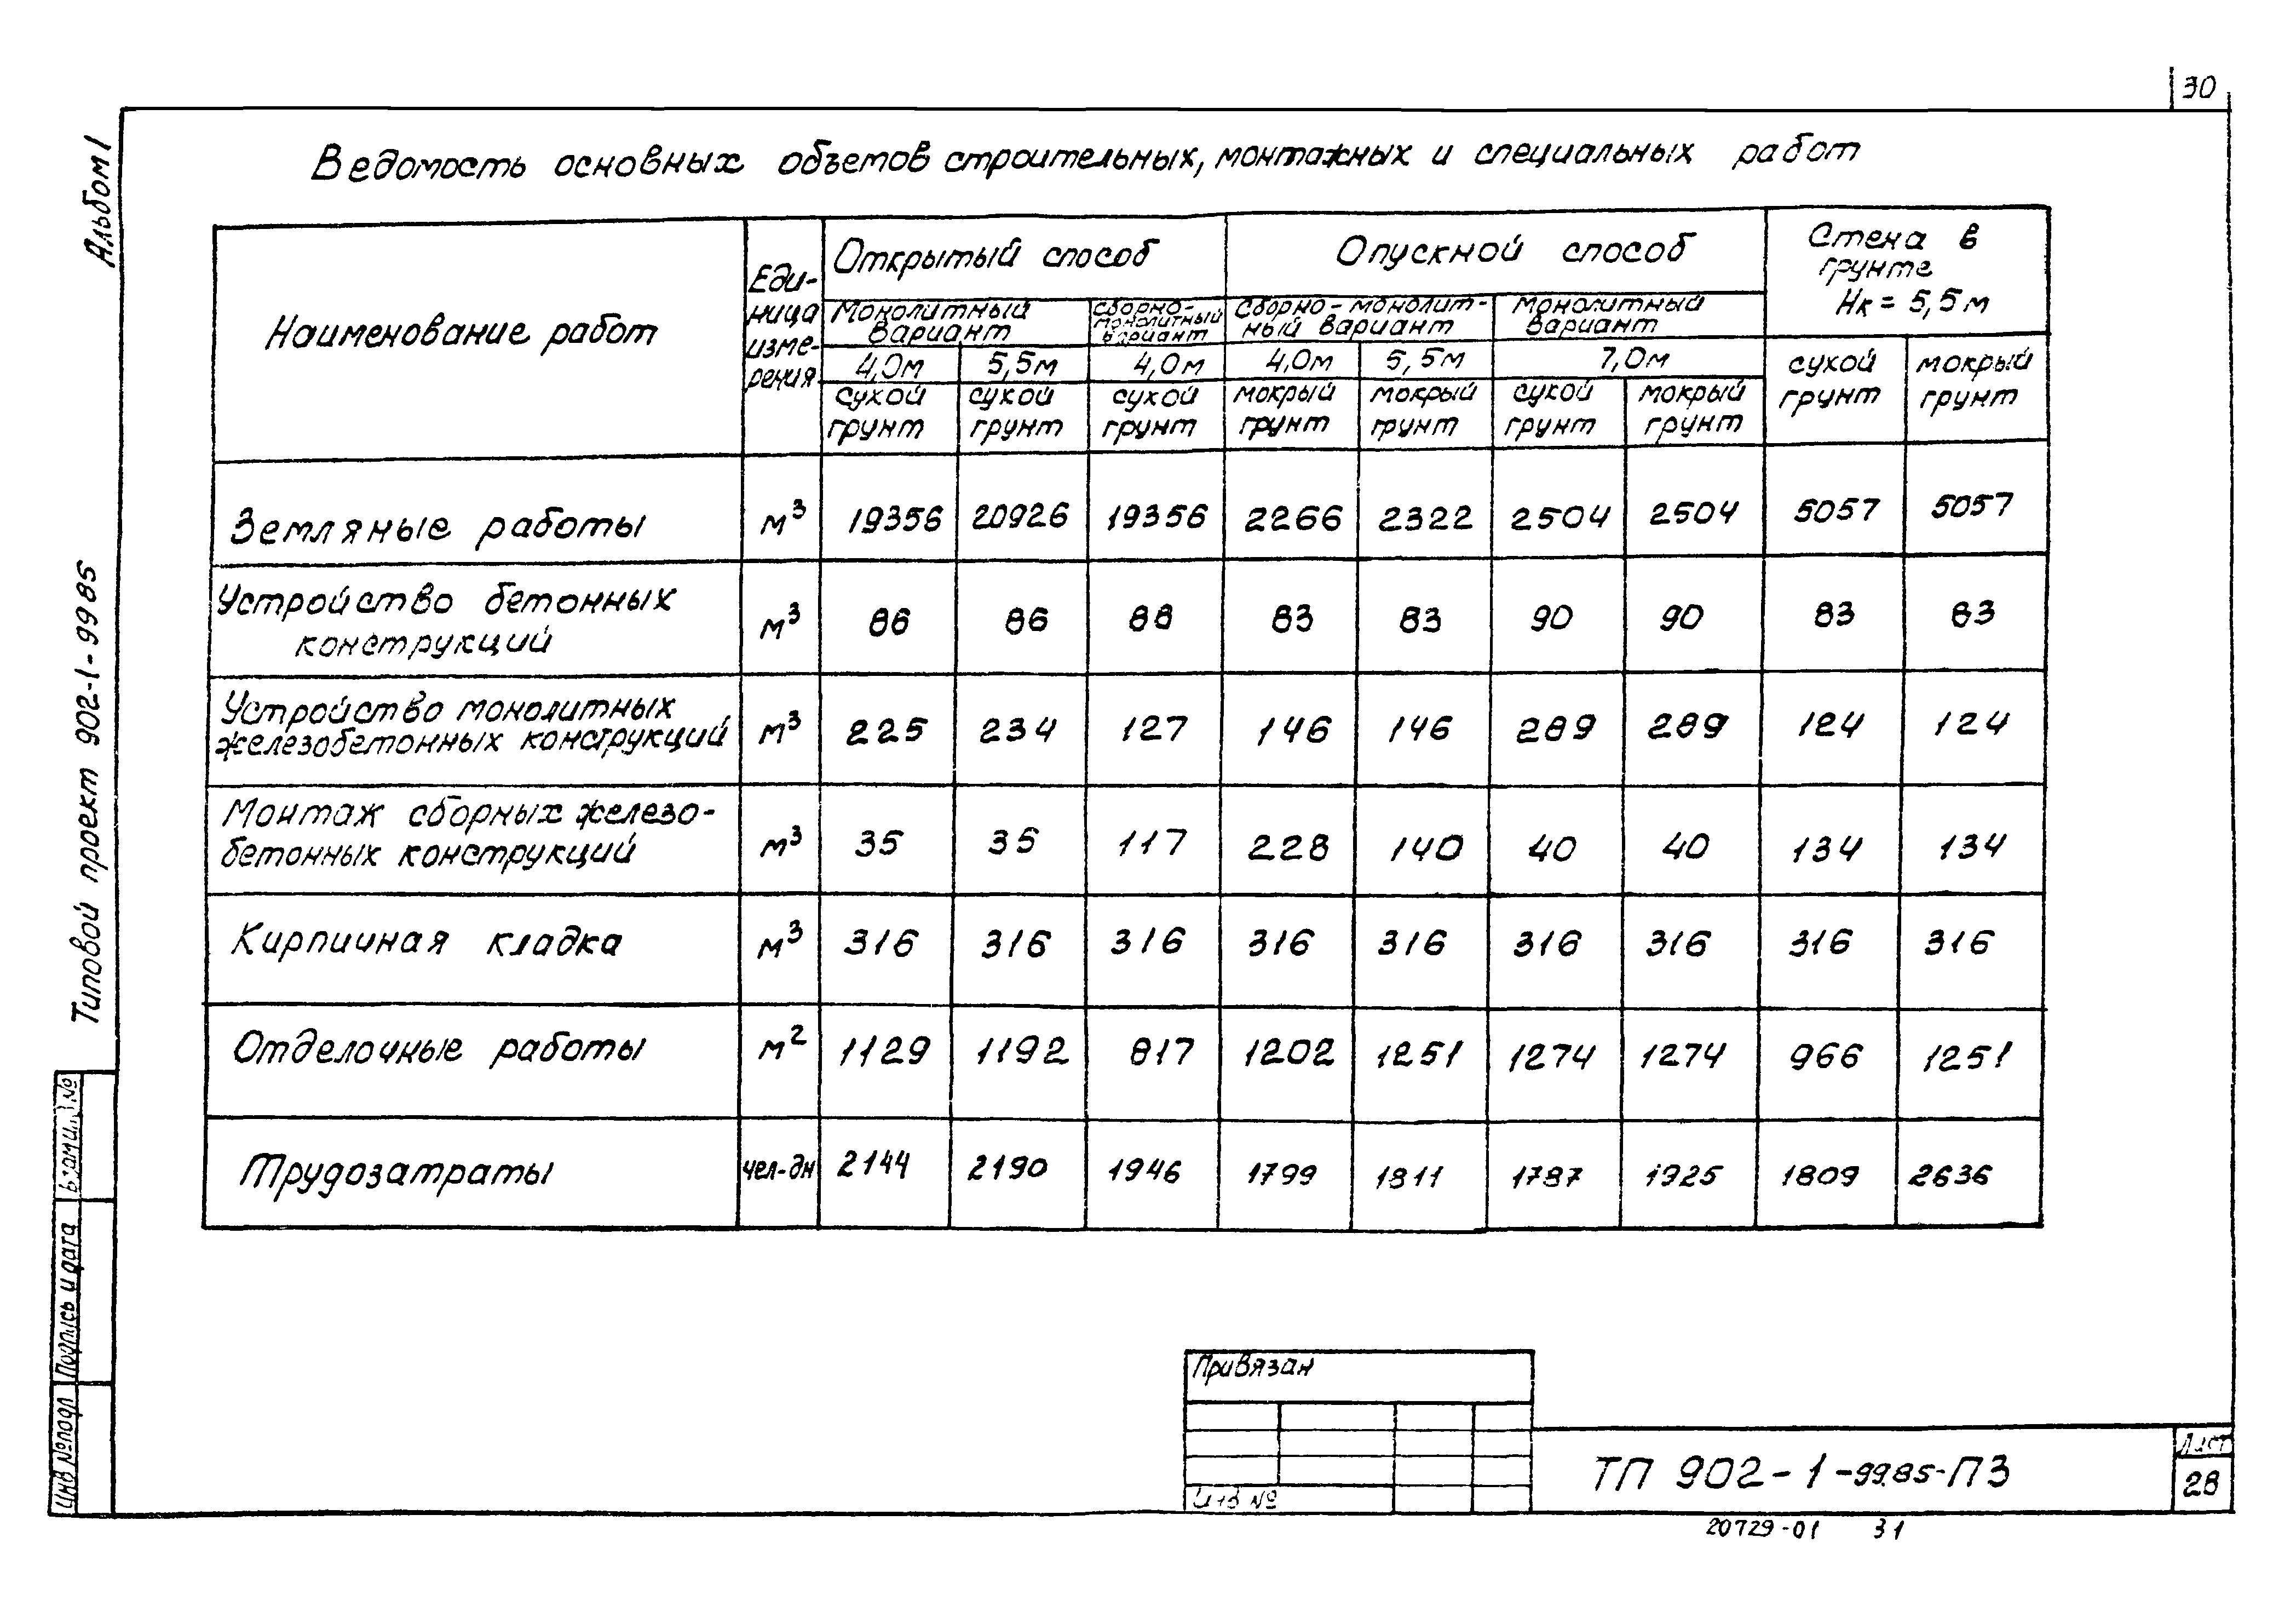 30
Альбом 1
Типовой проект 902-1-99 85
Ведомость основных объемов строительных, монтажных и специальных работ
Наименование работ
Еди-
ница
изме-
рения
Открытый способ
Опускной способ
Стена в
грунте
Нк = 5,5 м
Монолитный
вариант
сборно-
монолитный
вариант
Сборно-монолит-
ный вариант
Монолитный
вариант
4,0м 5,5м 4,0м 4,0м 5,5м 7,0м
сухой
грунт
сухой
грунт
сухой
грунт
мокрый
грунт
мокрый
грунт
сухой
грунт
мокрый
грунт
сухой
грунт
мокрый
грунт
Земляные работы м³ 19356 20926 19356 2266 2322 2504 2504 5057 5057
Устройство бетонных
конструкций м³ 86 86 88 83 83 90 90 83 83
Устройство монолитных
железобетонных конструкций м³ 225 234 127 146 146 289 289 124 124
Монтаж сборных железо-
бетонных конструкций м³ 35 35 117 228 140 40 40 134 134
Кирпичная кладка м³ 316 316 316 316 316 316 316 316 316
Отделочные работы м² 1129 1192 817 1202 1251 1274 1274 966 1251
Трудозатраты чел-дн 2144 2190 1946 1799 1811 1787 1925 1809 2636
Взам инв №
Подпись и дата
Инв № подл
Привязан
Инв №
ТП 902-1-99.85-ПЗ
Лист
28
20729-01 31